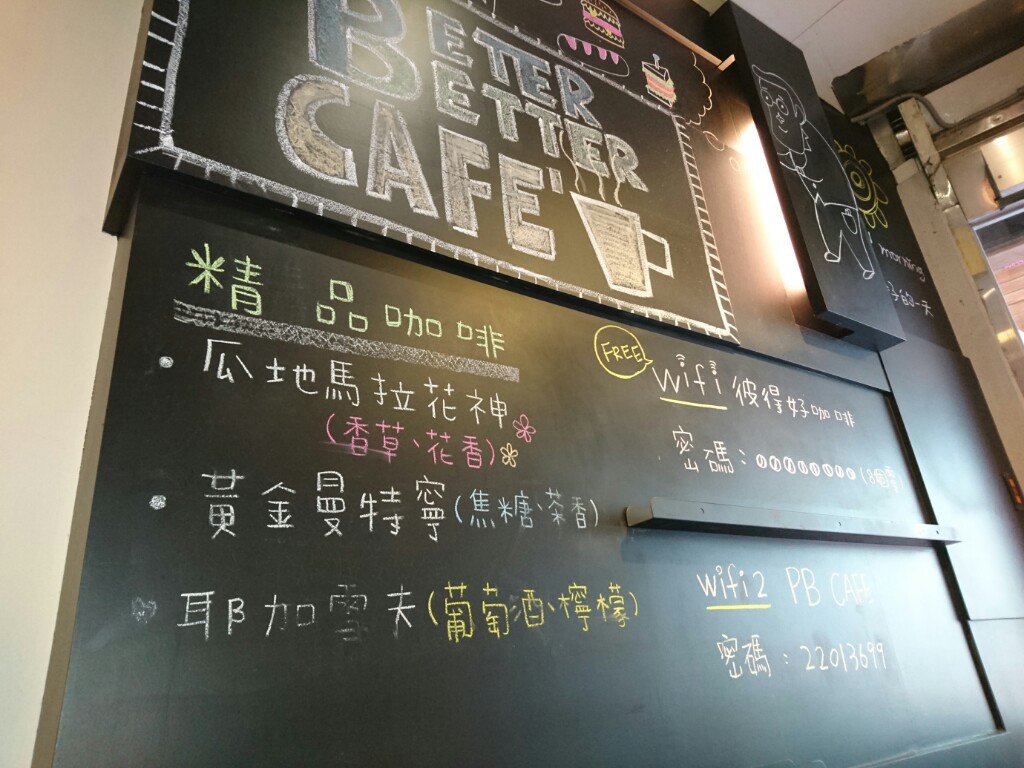 BETTER
BETTER
CAFE'
精品咖啡
瓜地馬拉花神
(香草、花香)
黃金曼特寧(焦糖、茶香)
耶加雪夫(葡萄酒、檸檬)
FREE
wifi 彼得好咖啡
密碼:00000000 (8個零)
wifi 2 PB CAFE
密碼:22013699
morning
的一天